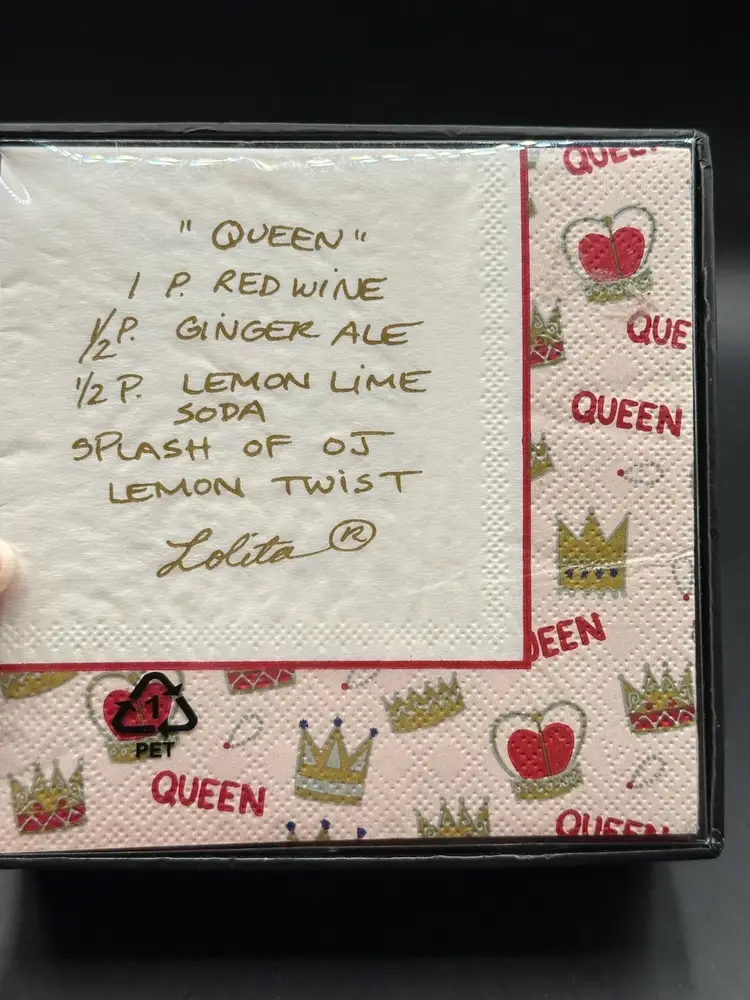 " QUEEN "
1 P. RED WINE
1/2 P. GINGER ALE
1/2 P. LEMON LIME
SODA
SPLASH OF OJ
LEMON TWIST
Lolita ®
1
PET
QUE
QUEEN
QUEEN